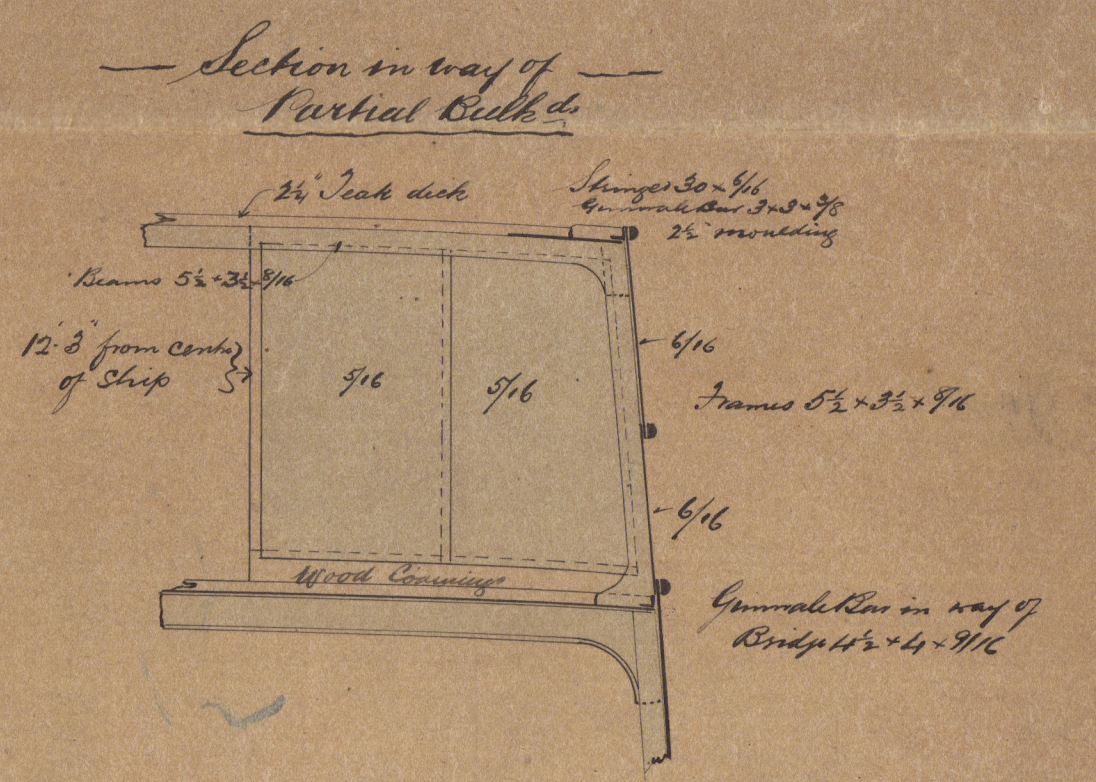 — Section in way of —
Partial Bulkds
2¼" Teak deck
Stringer 30 × 6/16
Gunwale Bar 3×3×3/8
2½ moulding
Beams 5½ × 3½ × 8/16
12'.3" from centre
of ship
5/16
5/16
6/16
Frames 5½ × 3½ × 8/16
6/16
Wood Coamings
Gunwale Bar in way of
Bridge 4½ × 4 × 9/16